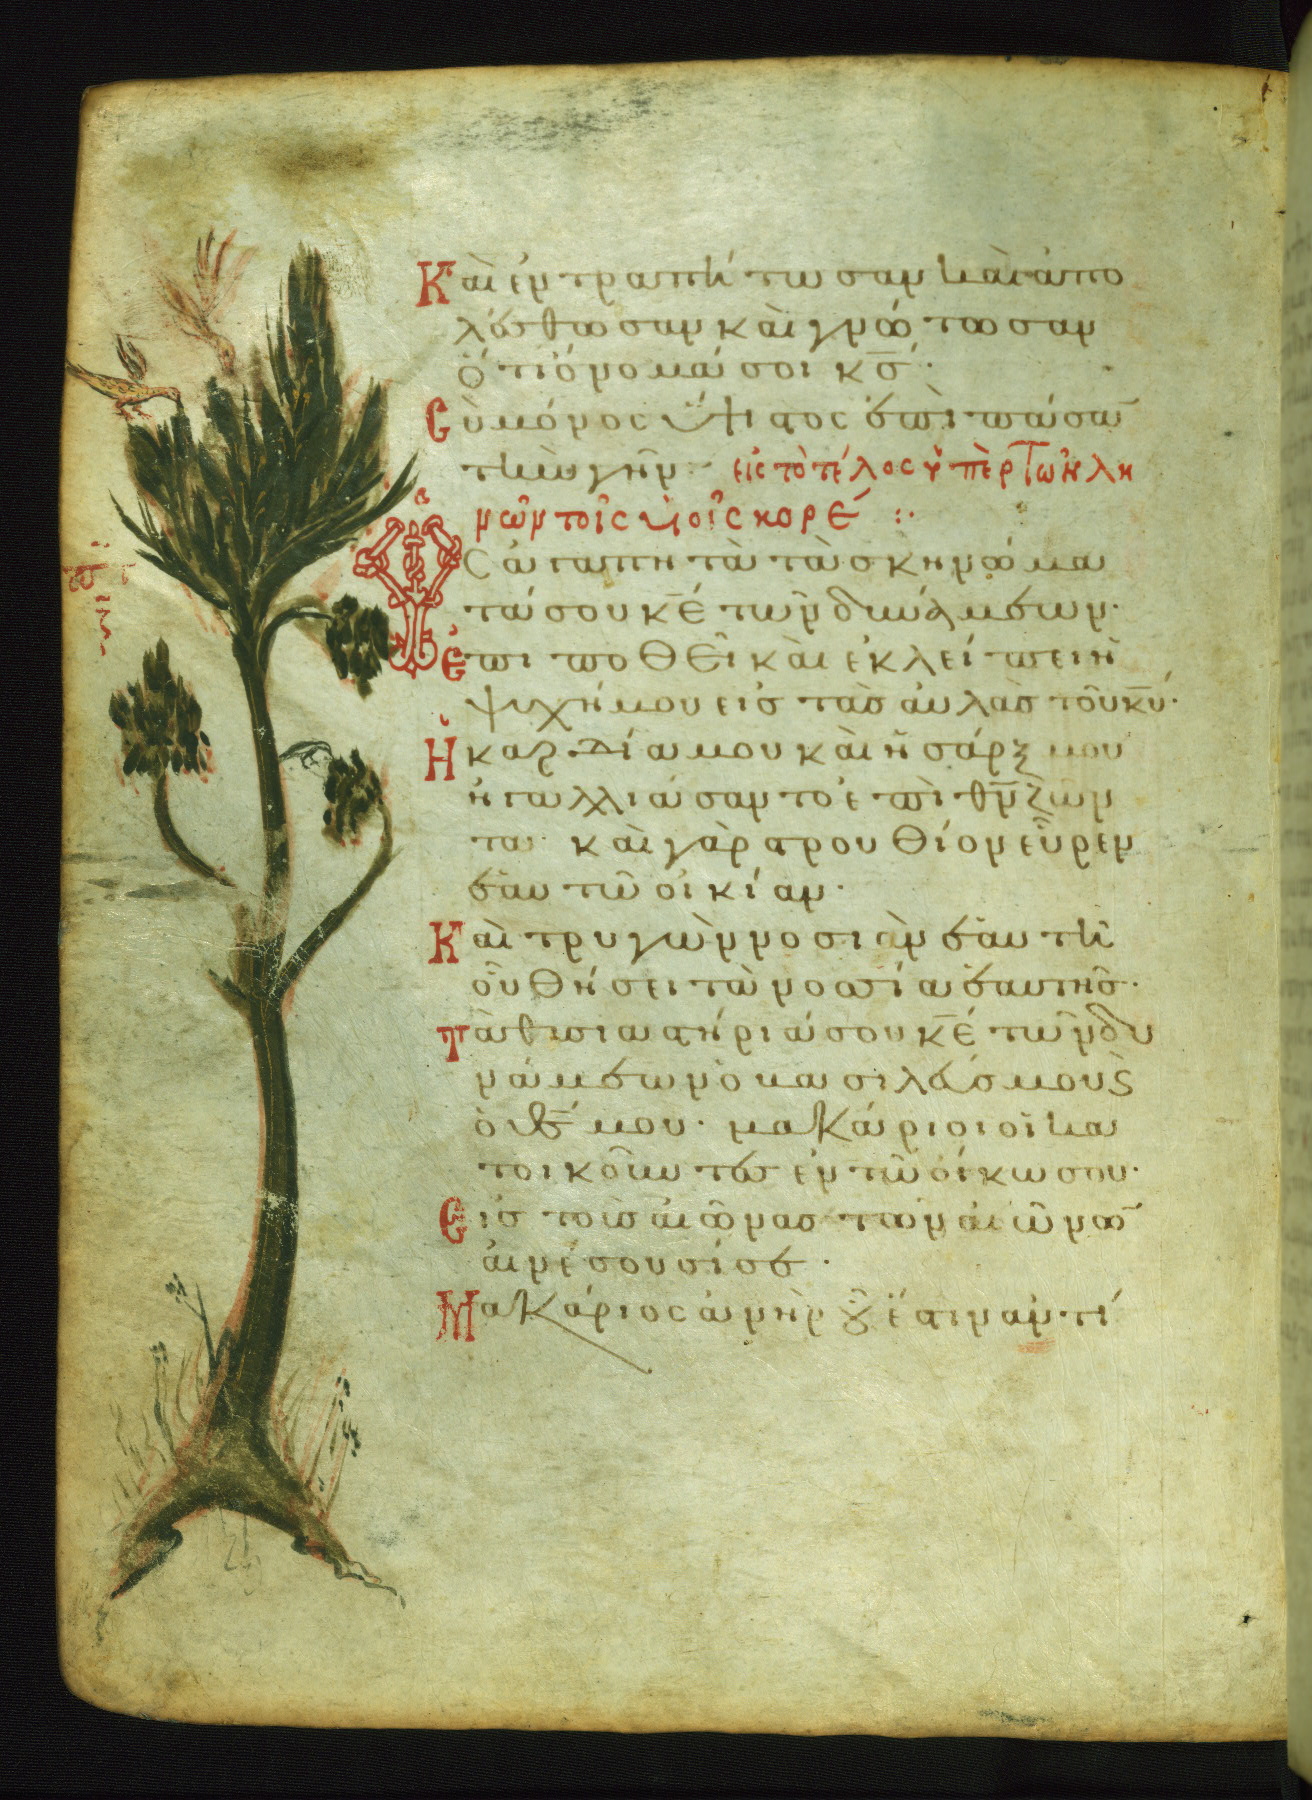 Καὶ ἐντραπήτωσαν καὶ ἀπο
λέσθωσαν καὶ γνώτωσαν
ὅτι ὄνομά σοι κ̅ς̅·
Σὺ μόνος ὕψιστος ἐπὶ πᾶσαν
τὴν γῆν· εἰς τὸ τέλος ὑπὲρ τῶν λη
νῶν τοῖς υἱοῖς κορέ :·
Ὡς ἀγαπητὰ τὰ σκηνώμα
τά σου κ̅ε̅ τῶν δυνάμεων·
Ἐπιποθεῖ καὶ ἐκλείπει ἡ
ψυχή μου εἰς τὰς αὐλὰς τοῦ κ̅υ̅·
Ἡ καρδία μου καὶ ἡ σάρξ μου
ἠγαλλιάσαντο ἐπὶ θ̅ν̅ ζῶν
τα· καὶ γὰρ στρουθίον εὗρεν
ἑαυτῶ οἰκίαν·
Καὶ τρυγὼν νοσιὰν ἑαυτῆ
οὗ θήσει τὰ νοσία ἑαυτῆς·
Τὰ θυσιαστήριά σου κ̅ε̅ τῶν δυ
νάμεων ὁ βασιλεύς μου καὶ
ὁ θ̅ς̅ μου· μακάριοι οἱ κα
τοικοῦντες ἐν τῶ οἴκω σου·
Εἰς τοὺς αἰῶνας τῶν αἰώνων
αἰνέσουσί σε·
Μακάριος ἀνὴρ οὗ ἔστιν ἀντί